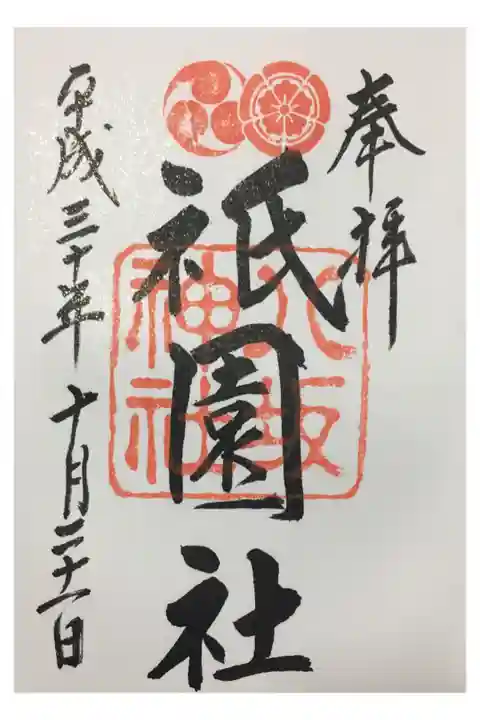 奉拝
八坂
神社
祇園社
平成三十年十月二十一日